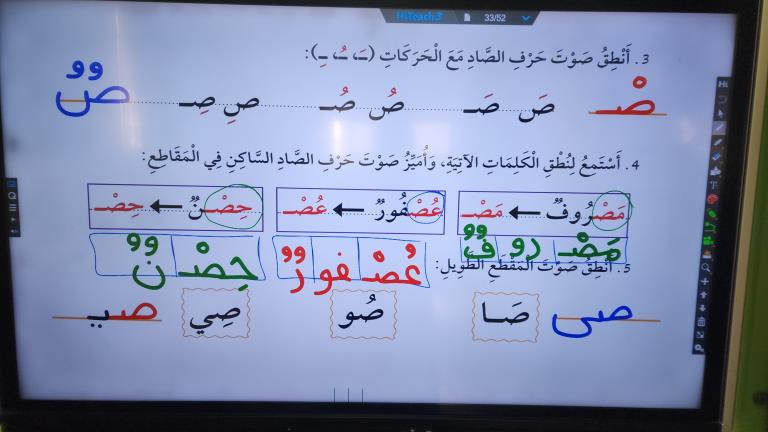 HiTeach3 33/52
3. أَنْطِقُ صَوْتَ حَرْفِ الصَّادِ مَعَ الْحَرَكَاتِ (ـَـ، ـُـ، ـِـ):
صْـ صَ صَـ صُ صُـ صِ صِـ ص
4. أَسْتَمِعُ لِنُطْقِ الْكَلِمَاتِ الْآتِيَةِ، وَأُمَيِّزُ صَوْتَ حَرْفِ الصَّادِ السَّاكِنِ فِي الْمَقَاطِعِ:
مَصْرُوفٌ ← مَصْـ عُصْفُورٌ ← عُصْـ حِصْنٌ ← حِصْـ
مَصْـ رو فٌ عُصْـ فو رٌ حِصْـ نٌ
5. أَنْطِقُ صَوْتَ الْمَقْطَعِ الطَّوِيلِ:
صى صَـا صُو صِي صيـ